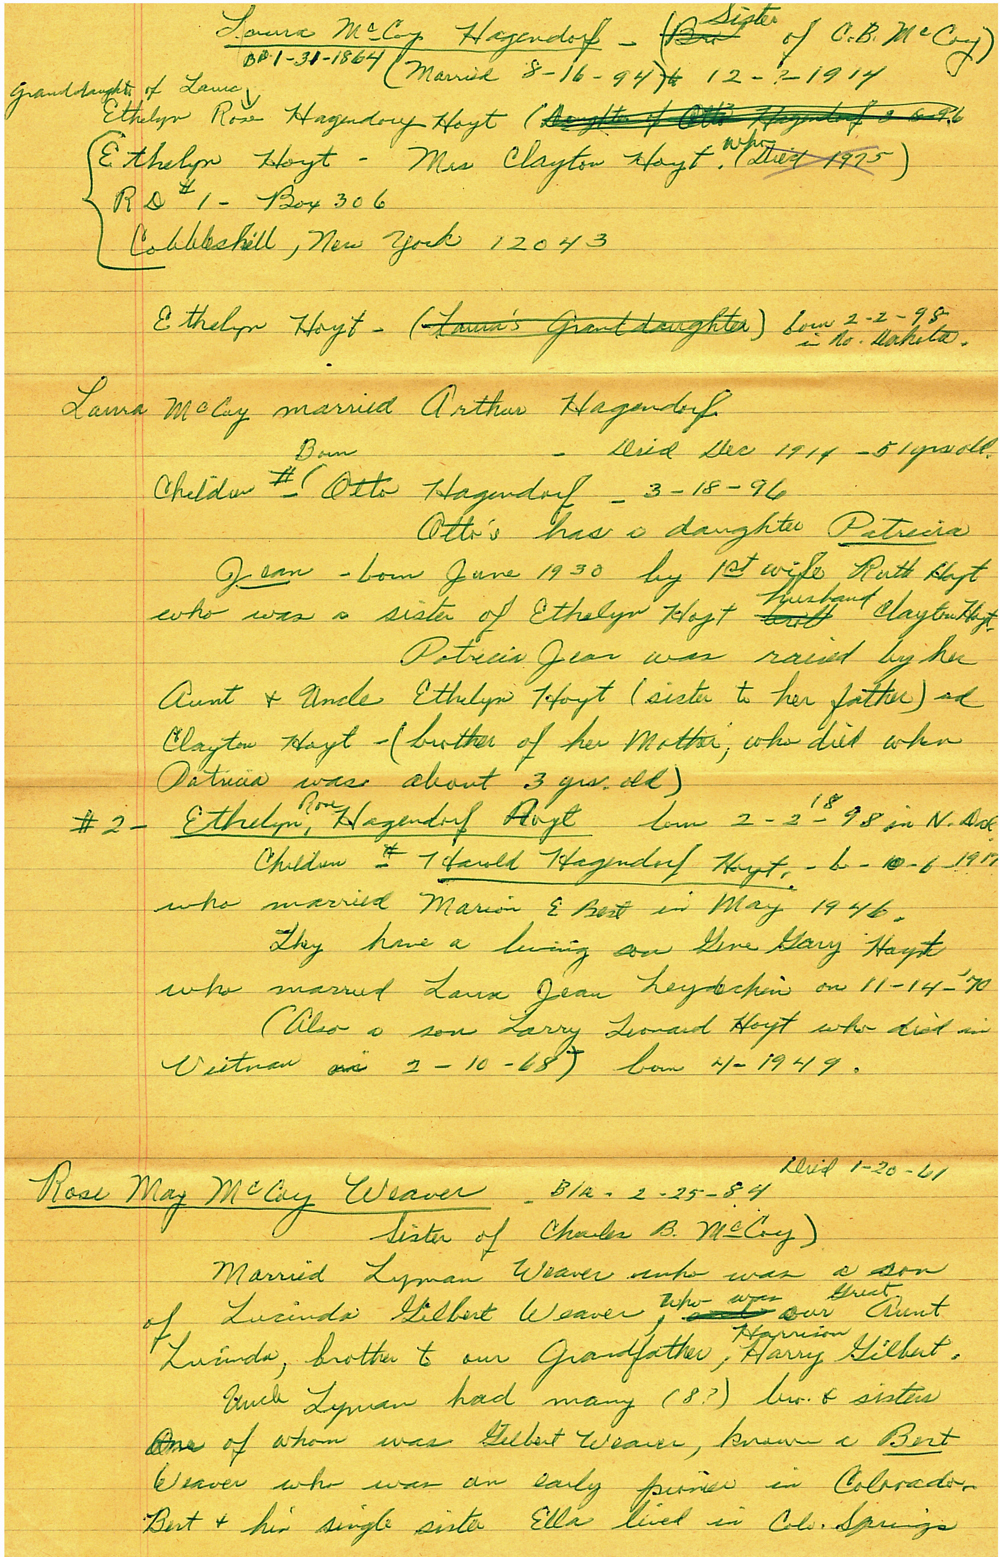 Laura McCoy Hagendorf - (Bro Sister of C.B. McCoy)
1-31-1864 (Married 8-16-94) 12-?-1914
Granddaught. of Laura
Ethelyn Rose Hagendorf Hoyt (Daughter of Otto Hagendorf 96
Ethelyn Hoyt - Mrs Clayton Hoyt. (who Died 1975)
RD #1 - Box 306
Cobbleskill, New York 12043
Ethelyn Hoyt - (Laura's Granddaughter) born 2-2-98
in No. Dakota.
Laura McCoy married Arthur Hagendorf
Born - Died Dec 1914 - 51 yrs old.
Children #1 Otto Hagendorf - 3-18-96
Otto's has a daughter Patricia
Jean - born June 1930 by 1st wife Ruth Hoyt
who was a sister of Ethelyn Hoyt husband Clayton Hoyt.
Patricia Jean was raised by her
Aunt & Uncle Ethelyn Hoyt (sister to her father) ad
Clayton Hoyt - (brother of her Mother, who died when
Patricia was about 3 yrs. old)
#2 - Ethelyn Rose Hagendorf Hoyt born 2-2-1898 in N. Dak
Children # 1 Harold Hagendorf Hoyt. - b - 10-6-1917
who married Marion E Best in May 1946.
They have a living son Gene Gary Hoyt
who married Laura Jean on 11-14-'70
(Also a son Larry Leonard Hoyt who died in
Vietnam in 2-10-68) born 4-1949.
Died 1-20-61
Rose May McCoy Weaver - 2-25-84
Sister of Charles B. McCoy)
Married Lyman Weaver who was a son
of Lucinda Gilbert Weaver, who was our Great Aunt
Lucinda, brother to our Grandfather, Harrison Harry Gilbert.
Uncle Lyman had many (8?) bro. & sisters
One of whom was Gilbert Weaver, known a Bert
Weaver who was an early pioneer in Colorado.
Bert & his single sister Ella lived in Colo. Springs